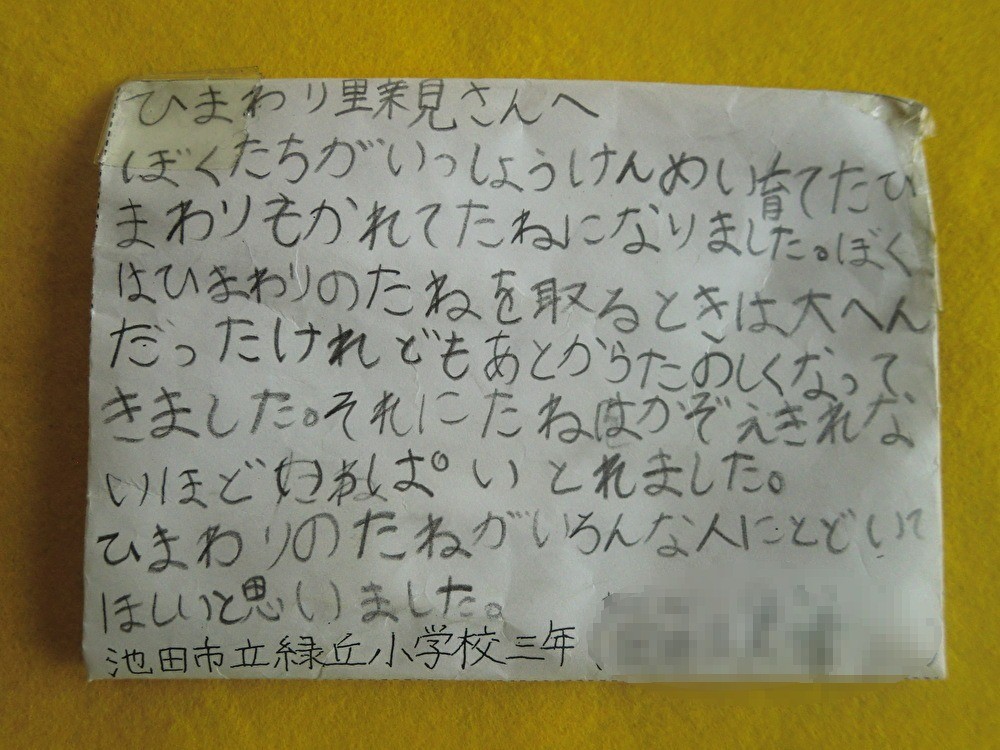 ひまわり里親見さんへ
ぼくたちがいっしょうけんめい育てたひ
まわりもかれてたねになりました。ぼく
はひまわりのたねを取るときは大へん
だったけれどもあとからたのしくなって
きました。それにたねはかぞえきれな
いほど いとれました。
ひまわりのたねがいろんな人にとどいて
ほしいと思いました。
池田市立緑丘小学校三年